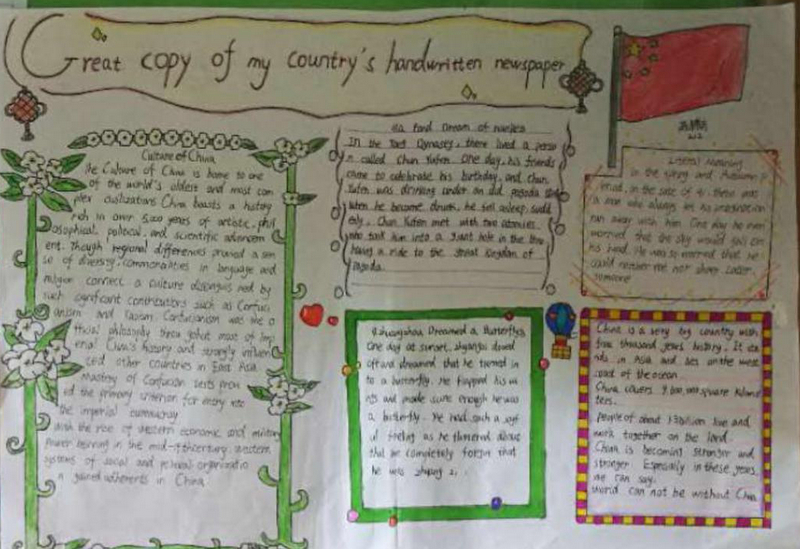 Great copy of my country's handwritten newspaper
Culture of China
The Culture of China is home to one
of the world's oldest and most com
plex civilizations China boasts a history
rich in over 5,000 years of artistic, phil
osophical, political, and scientific advancem
ent. Though regional differences provied a sen
se of diversity, commonalities in language and
religion connect a culture distinguis hed by
such significant contributions such as Confuci
anism and Taoism. Confucianism was the o
fficial philosophy throu ghout most of Imp
erial China's history and strongly influen
ced other countries in East Asia.
Mastery of Confucian texts provi
ed the primary criterion for entry into
the imperial
with the rise of western economic and military
power beining in the mid-19thcentury, western
systems of social and political organizatio
n gained adherents in China
Dream of
In the Tang Dynasty, there lived a perso
n called Chun Yufen. One day, his friends
came to celebrate his birthday, and Chun
Yufen was drinking under an old pagoda
When he become drunk, he fell asleep. sudd
enly, Chun Yufen met with two
who took him into a giant hole in the tree
having a ride to the great Kingdom of
pagoda.
Literal Meaning
In the spring and Autumn p
eriod, in the state of qi, there was
a man who always let his imagination
run away with him. One day he even
worried that the sky would fall on
his head. He was so worried that he
could neither eat not sleep. Later,
someone
Zhuangzhou Dreamed a Butterfly
One day at sunset, zhuangzi dozed
off and dreamed that he turned in
to a butterfly. He flapped his wi
ngs and made sure enough he was
a butterfly. He had such a joyf
ul feeling as he fluttered about
that he completely forgot that
he was
China is a very big country with
five thousand years history. It sta
nds in Asia and lies on the west
coast of the ocean.
China covers 9,600,000 square kilome
ters.
people of about 1.3 billion live and
work together on the land
China is becoming stronger and
stronger Especially in these years.
we can say.
World can not be without China